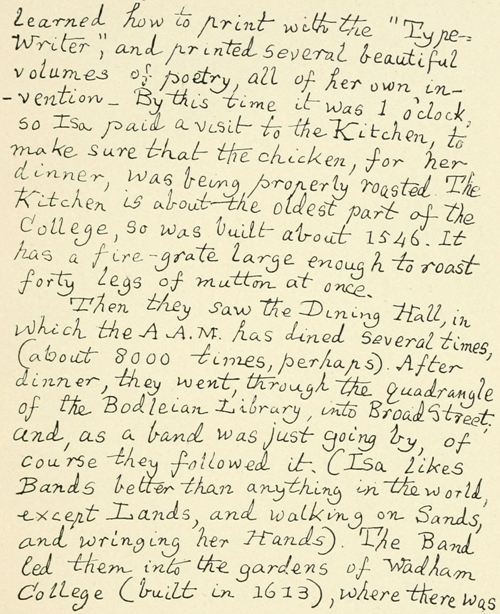 learned how to print with the "Type-
Writer", and printed several beautiful
volumes of poetry, all of her own in-
-vention- By this time it was 1 o'clock,
so Isa paid a visit to the Kitchen, to
make sure that the chicken, for her
dinner, was being properly roasted. The
Kitchen is about the oldest part of the
College, so was built about 1546. It
has a fire-grate large enough to roast
forty legs of mutton at once.
Then they saw the Dining Hall, in
which the A.A.M. has dined several times,
(about 8000 times, perhaps). After
dinner, they went, through the quadrangle
of the Bodleian Library, into Broad Street,
and, as a band was just going by, of
course they followed it. (Isa likes
Bands better than anything in the world,
except Lands, and walking on Sands,
and wringing her Hands). The Band
led them into the gardens of Wadham
College (built in 1613), where there was